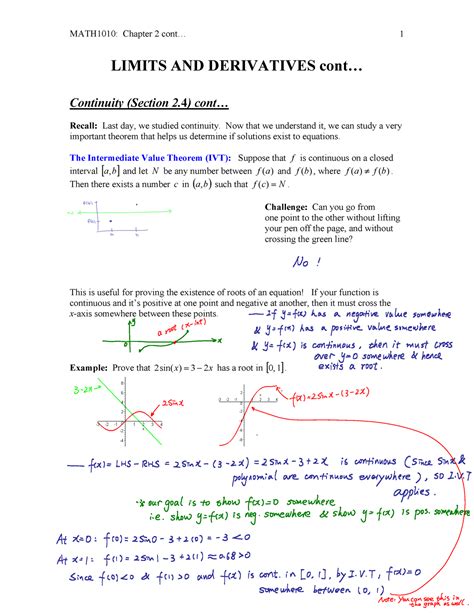 MATH1010: Chapter 2 cont… 1
LIMITS AND DERIVATIVES cont…
Continuity (Section 2.4) cont…
Recall: Last day, we studied continuity. Now that we understand it, we can study a very
important theorem that helps us determine if solutions exist to equations.
The Intermediate Value Theorem (IVT): Suppose that f is continuous on a closed
interval [a,b] and let N be any number between f(a) and f(b), where f(a) ≠ f(b).
Then there exists a number c in (a,b) such that f(c) = N.
Challenge: Can you go from
one point to the other without lifting
your pen off the page, and without
crossing the green line?
No !
This is useful for proving the existence of roots of an equation! If your function is
continuous and it's positive at one point and negative at another, then it must cross the
x-axis somewhere between these points.
— If y=f(x) has a negative value somewhere
& y=f(x) has a positive value somewhere
& y=f(x) is continuous, then it must cross
over y=0 somewhere & hence
exists a root.
a root (x-int)
y
0
x
Example: Prove that 2sin(x) = 3 − 2x has a root in [0,1].
3-2x
2sinx
f(x)=2sinx-(3-2x)
— f(x)= LHS - RHS = 2sinx - (3-2x) = 2sinx-3+2x is continuous (since sinx &
polynomial are continuous everywhere), so I.V.T
applies.
* our goal is to show f(x)=0 somewhere
i.e. show y=f(x) is neg. somewhere & show y=f(x) is pos. somewhere
At x=0: f(0) = 2sin0 - 3+2(0) = -3 <0
At x=1: f(1) = 2sin1 - 3+2(1) ≈ 0.68 >0
Since f(0)<0 & f(1)>0 and f(x) is cont. in [0,1], by I.V.T, f(x)=0
somewhere between (0,1).
Note: You can see this in
the graph as well.